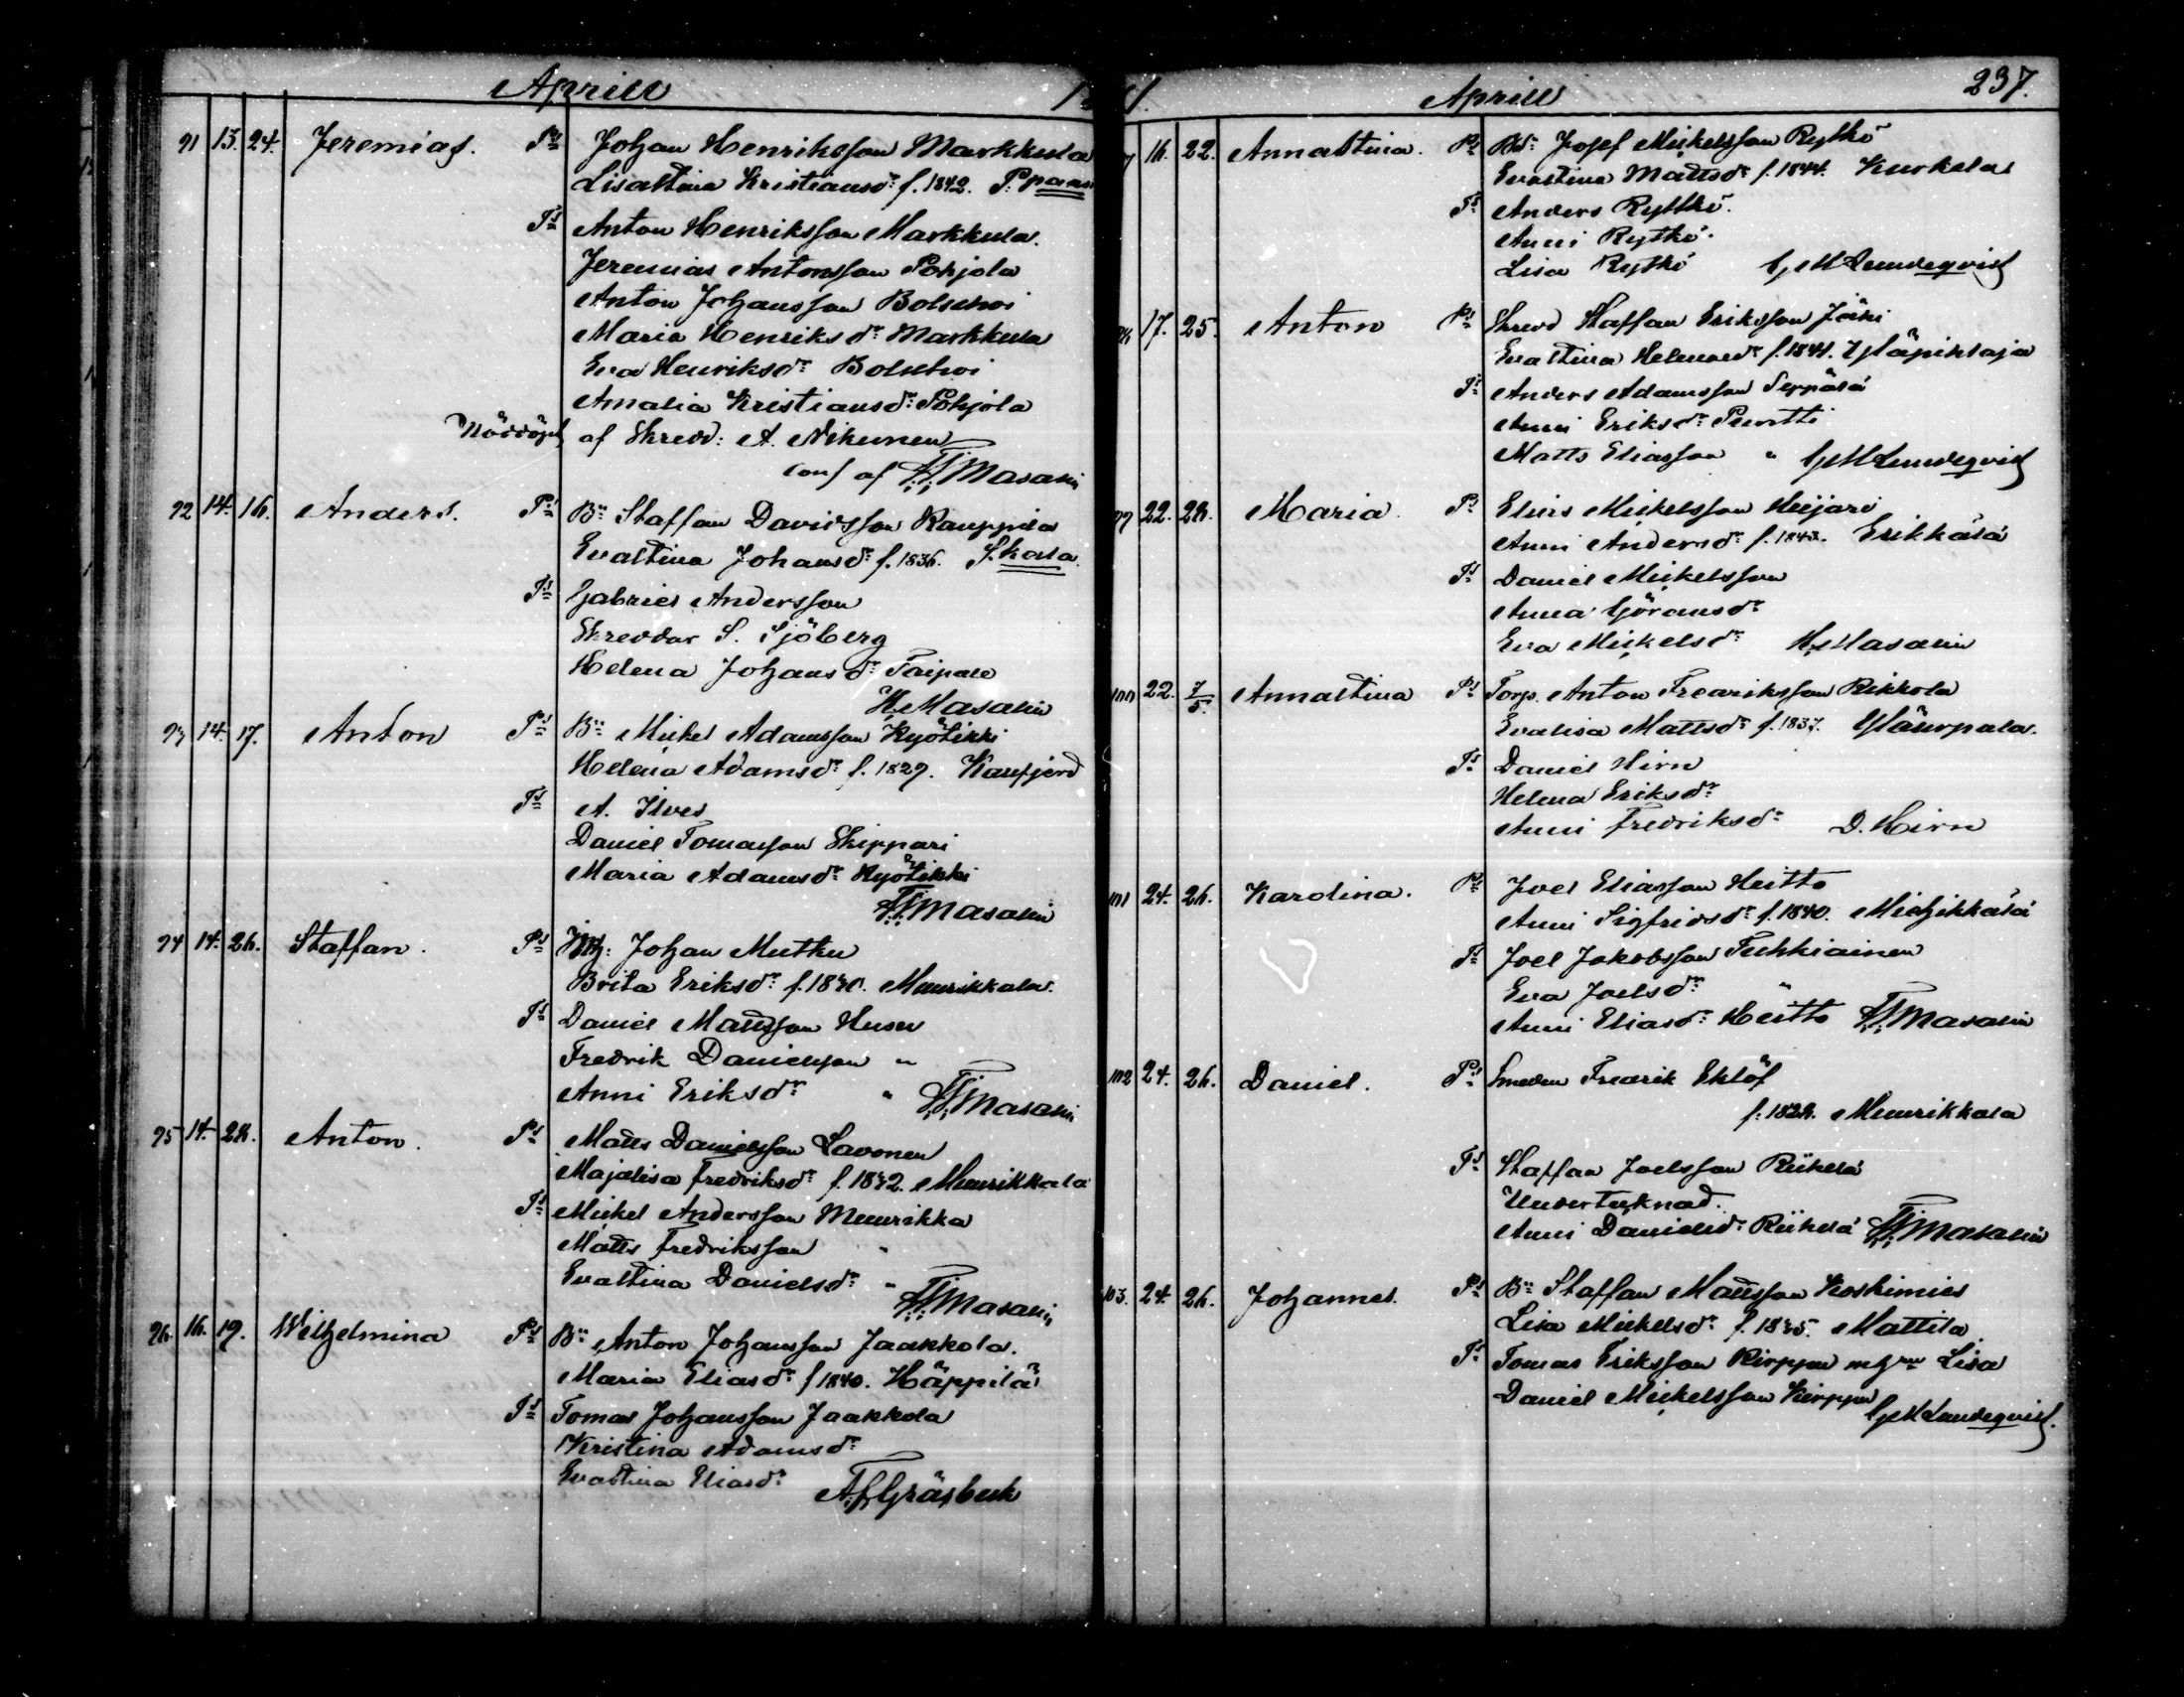 Aprill
91 13. 24. Jeremias. Ps Johan Henriksson Markkula
Lisastina Kristiansdr f. 1842.
Ts Anton Henriksson Markkula.
Jeremias Antonsson Pohjola
Anton Johansson Bolschoi
Maria Henriksdr Markkula
Eva Henriksdr Bolschoi
Amalia Kristiansdr Pohjola
Nöddöpt af Skredd: A. Nikunen
conf af HjMasalin
92 14. 16. Anders. Ps Bn Staffan Davidsson Kauppila
Evastina Johansdr f. 1836. Skala.
Ts Gabriel Andersson
Skreddar S. Sjöberg
Helena Johansdr Taipale
HjMasalin
93 14. 17. Anton Ps Bn Mickel Adamsson Kyötikki
Helena Adamsdr f. 1829. Kaufjerd
Ts A. Ilves
Daniel Tomasson Skippari
Maria Adamsdr Kyötikki
HjMasalin
94 14. 26. Staffan. Ps Johan Mutku
Brita Eriksdr f. 1840. Muurikkala.
Ts Daniel Mattsson Husu
Fredrik Danielsson "
Anni Eriksdr " HjMasalin
95 14. 28. Anton. Ps Matts Danielsson Savonen
Majalisa Fredriksdr f. 1842. Muurikkala
Ts Mickel Andersson Muurikka
Matts Fredriksson "
Evastina Danielsdr " HjMasalin
96. 16. 19. Wilhelmina Ps Bn Anton Johansson Jaakkola.
Maria Eliasdr f 1840. Häppilä
Ts Tomas Johansson Jaakkola
Kristina Adamsdr
Evastina Eliasdr AfGräsbeck
Aprill 237.
16. 22. Annastina. Ps Bd: Josef Mickelsson Rytkö
Evastina Mattsdr f. 1844. Kurkela
Ts Anders Rytkö.
Anni Rytkö.
Lisa Rytkö GMLundeqvist
17. 25. Anton Ps Skredd Staffan Eriksson Jöihi
Evastina Helenasdr f. 1841. Yläpihlaja
Ts Anders Adamsson Seppälä
Anni Eriksdr Puntti
Matts Eliasson " GMLundeqvist
22. 28. Maria. Ps Elias Mickelsson Heijari
Anni Andersdr f. 1843. Erikkälä
Ts Daniel Mickelsson
Anna Göransdr
Eva Mickelsdr HjMasalin
100 22. 7/5. Annastina Ps Torp. Anton Fredriksson Rikkola
Evalisa Mattsdr f. 1837. Yläurpala.
Ts Daniel Hirn
Helena Eriksdr
Anni Fredriksdr D. Hirn
101 24. 26. Karolina. Ps Joel Eliasson Heitto
Anni Sigfridsdr f. 1840. Miehikkälä
Ts Joel Jakobsson Tuhkiainen
Eva Joelsdr
Anni Eliasdr Heitto HjMasalin
102 24. 26. Daniel. Ps Smeden Fredrik Eklöf
f. 1828. Muurikkala
Ts Staffan Joelsson Riihelä
Undertecknad.
Anni Danielsdr Riihelä HjMasalin
103. 24. 26. Johannes. Ps Bn Staffan Mattsson Koskimies
Lisa Mickelsdr f. 1835. Mattila
Ts Tomas Eriksson Kirppu m hn Lisa
Daniel Mickelsson Kirppu
GMLundeqvist.